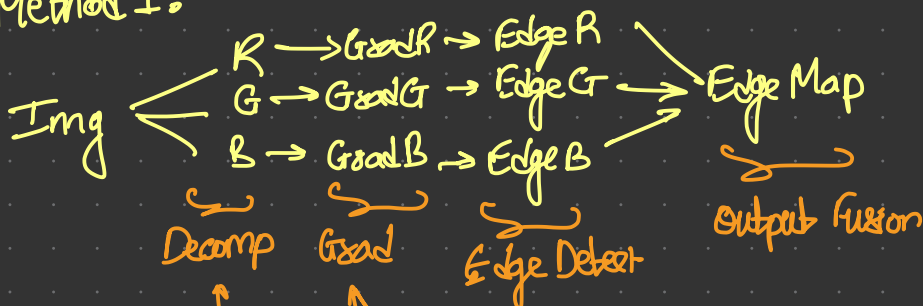 Method I:
R → GradR → Edge R
Img G → GradG → Edge G → Edge Map
B → GradB → Edge B
Decomp Grad Edge Detect Output Fusion